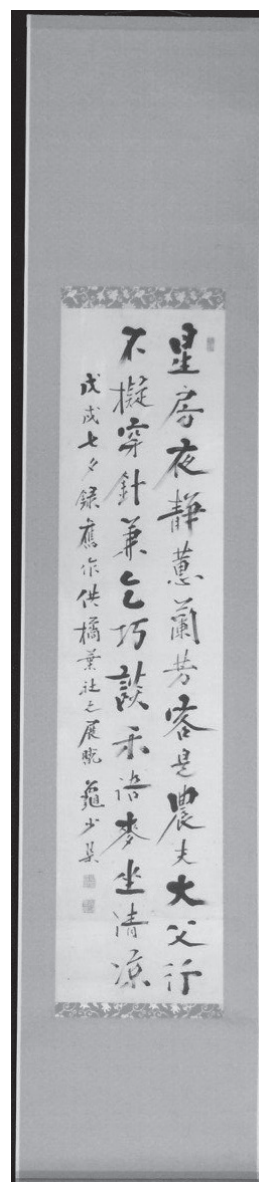 星房夜静蕙蘭芳客是農夫大父行
不擬穿針兼乞巧談禾語麥坐清涼
戊戌七夕録應作供橘葉社之展覧 龜少琹